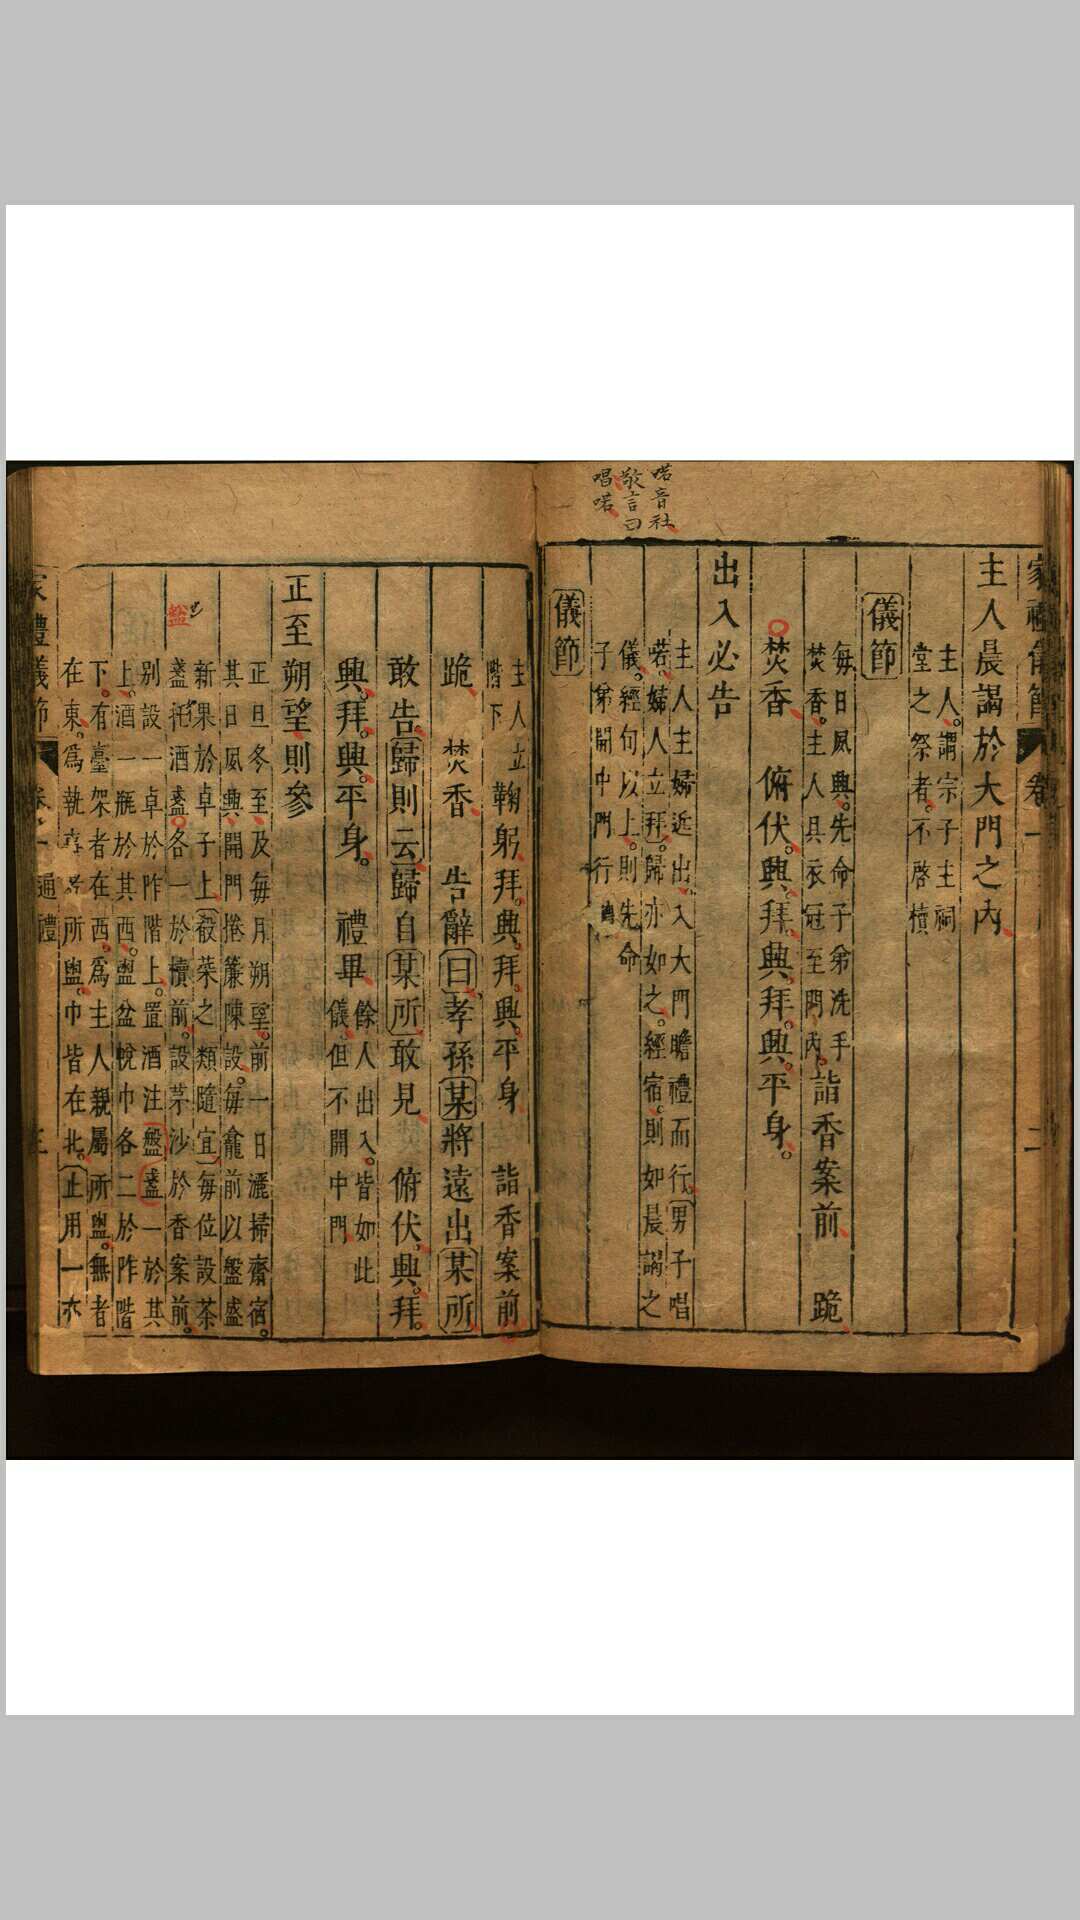 喏音社
敬言曰
唱喏
主人晨謁於大門之內
主人謂宗子主祠
堂之祭者不啓櫝
儀節
每日夙興先命子弟洗手
焚香主人具衣冠至門內詣香案前 跪
焚香 俯伏興拜興拜興平身
出入必告
主人主婦近出入大門瞻禮而行男子唱
喏婦人立拜歸亦如之經宿則如晨謁之
儀經旬以上則先命
子弟開中門行
儀節
主人立
階下
鞠躬拜興拜興平身 詣香案前
跪 焚香 告辭曰孝孫某將遠出某所
敢告歸則云歸自某所敢見 俯伏興拜
興拜興平身 禮畢
餘人出入皆如此
儀但不開中門
正至朔望則參
正旦冬至及每月朔望前一日灑掃齋宿
其日夙興開門捲簾陳設每龕前以盤盛
新果於卓子上殽菜之類隨宜每位設茶
盞托酒盞各一於櫝前設茅沙於香案前
盤
別設一卓於阼階上置酒注盤盞一於其
上酒一瓶於其西盥盆帨巾各二於阼階
下有臺架者在西為主人親屬所盥無者
在東為執事者所盥巾皆在北正用一衣
家禮儀節
卷一
通禮